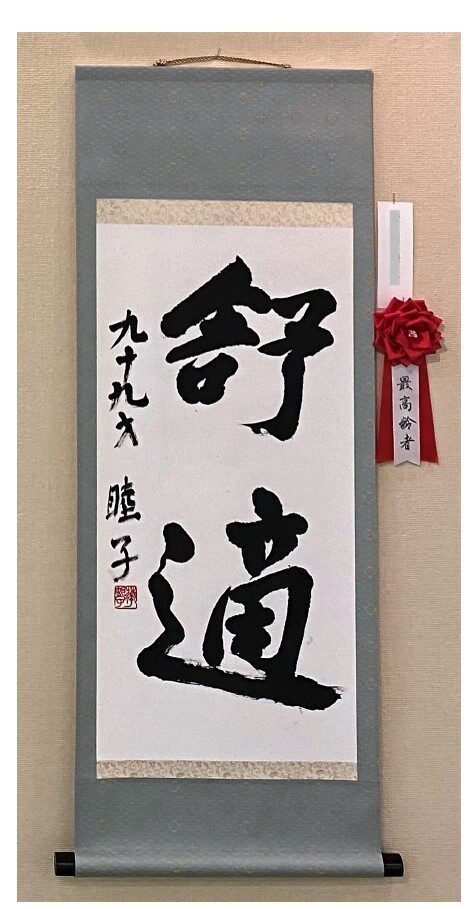 舒適
九十九才 睦子
最高齢者